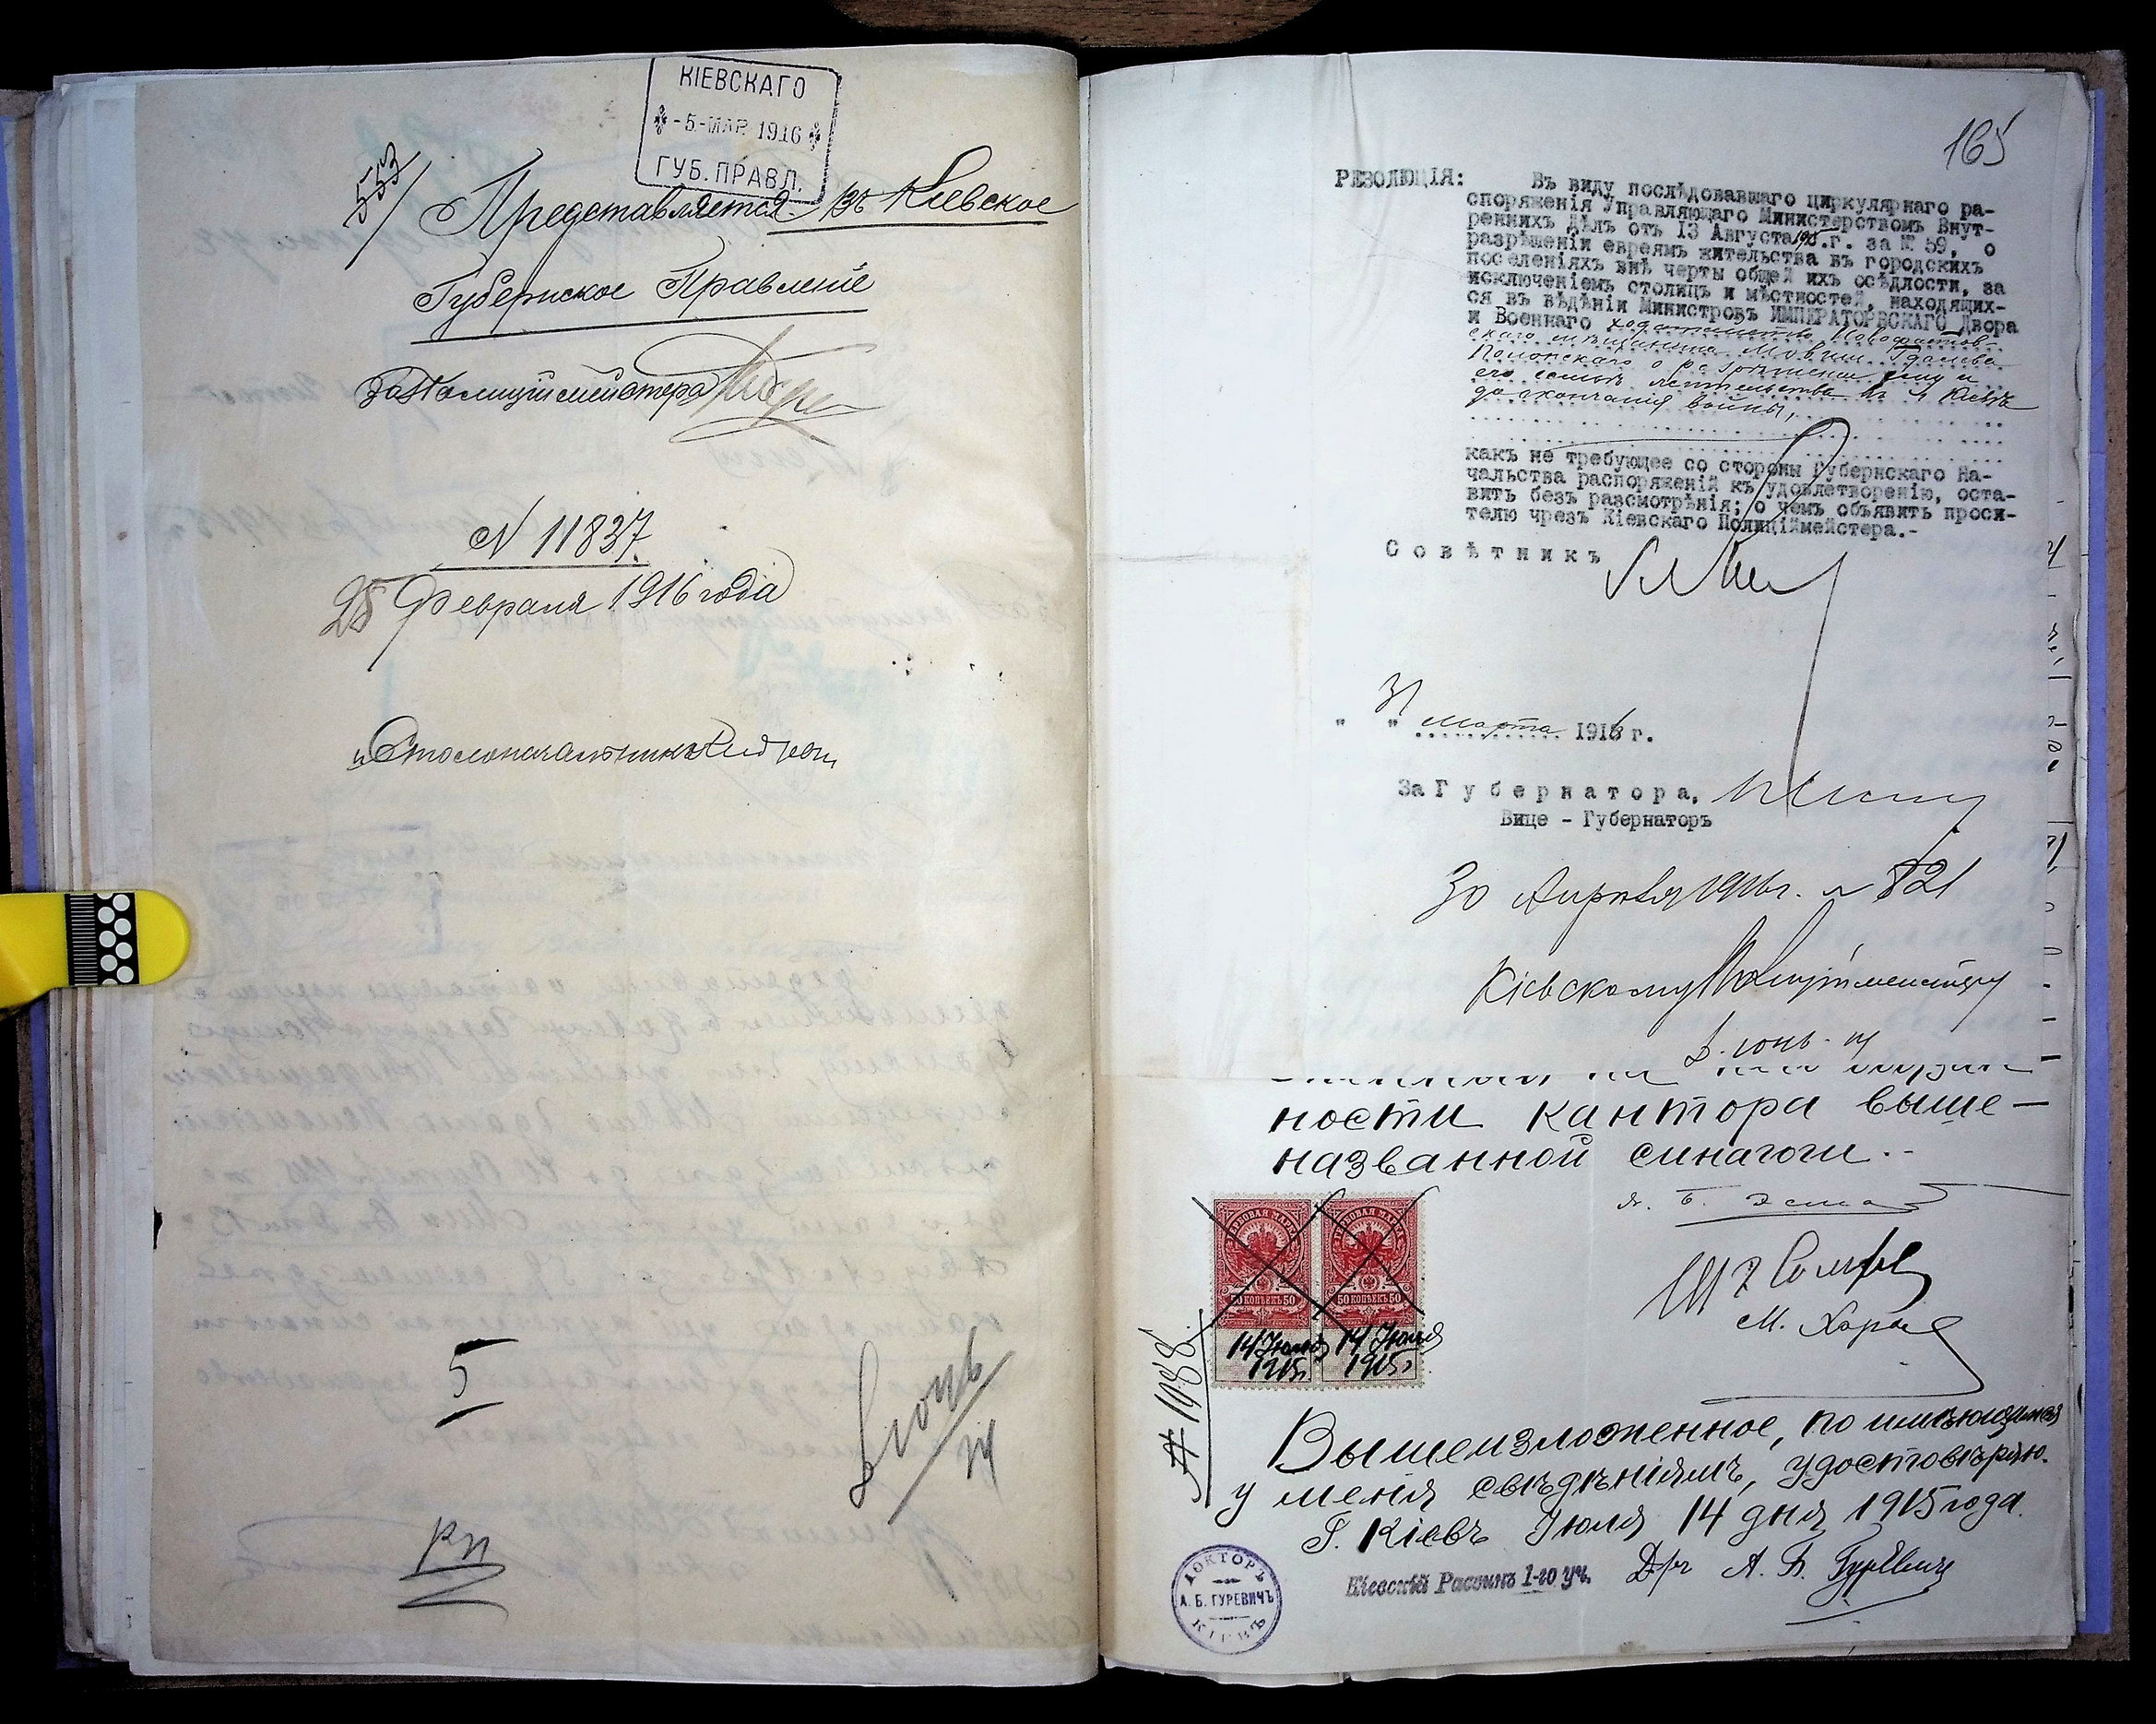 КІЕВСКАГО
-5-МАР 1916
ГУБ. ПРАВЛ.
553
Представляется въ Кіевское
Губернское Правленіе
За Полиціймейстера
N 11837.
25 Февраля 1916 года
Столоначальникъ
5
165
РЕЗОЛЮЦІЯ: Въ виду послѣдовавшаго циркулярнаго ра-
споряженія Управляющаго Министерствомъ Внут-
реннихъ Дѣлъ отъ 13 Августа 1915 г. за № 59, о
разрѣшеніи евреямъ жительства въ городскихъ
поселеніяхъ внѣ черты общей ихъ осѣдлости, за
исключеніемъ столицъ и мѣстностей, находящих-
ся въ вѣдѣніи Министровъ ИМПЕРАТОРСКАГО Двора
и Военнаго ходатайство Новофастов-
скаго мѣщанина Мовши Гдалева
Полонскаго о разрѣшеніи ему и
его семьѣ жительства въ г. Кіевѣ
до окончанія войны,
какъ не требующее со стороны Губернскаго На-
чальства распоряженій къ удовлетворенію, оста-
вить безъ разсмотрѣнія; о чемъ объявить проси-
телю чрезъ Кіевскаго Полиціймейстера.-
Совѣтникъ
" 31 " Марта 1916 г.
За Губернатора,
Вице - Губернаторъ
30 Апрѣля 1916 г. N 821
Кіевскому Полиціймейстеру
ности кантора выше-
названной синагоги.-
ГЕРБОВАЯ МАРКА ГЕРБОВАЯ МАРКА
50 КОПѢЕКЪ 50 50 КОПѢЕКЪ 50
14 Іюля 14 Іюля
1915 г. 1915 г.
М.
№ 1988.
Вышеизложенное, по имѣющимся
у меня свѣдѣніямъ, удостовѣряю.
Г. Кіевъ Іюля 14 дня 1915 года.
Кіевскій Раввинъ 1-го уч. Д-ръ А. Б. Гуревичъ
ДОКТОРЪ
А. Б. ГУРЕВИЧЪ
КІЕВЪ